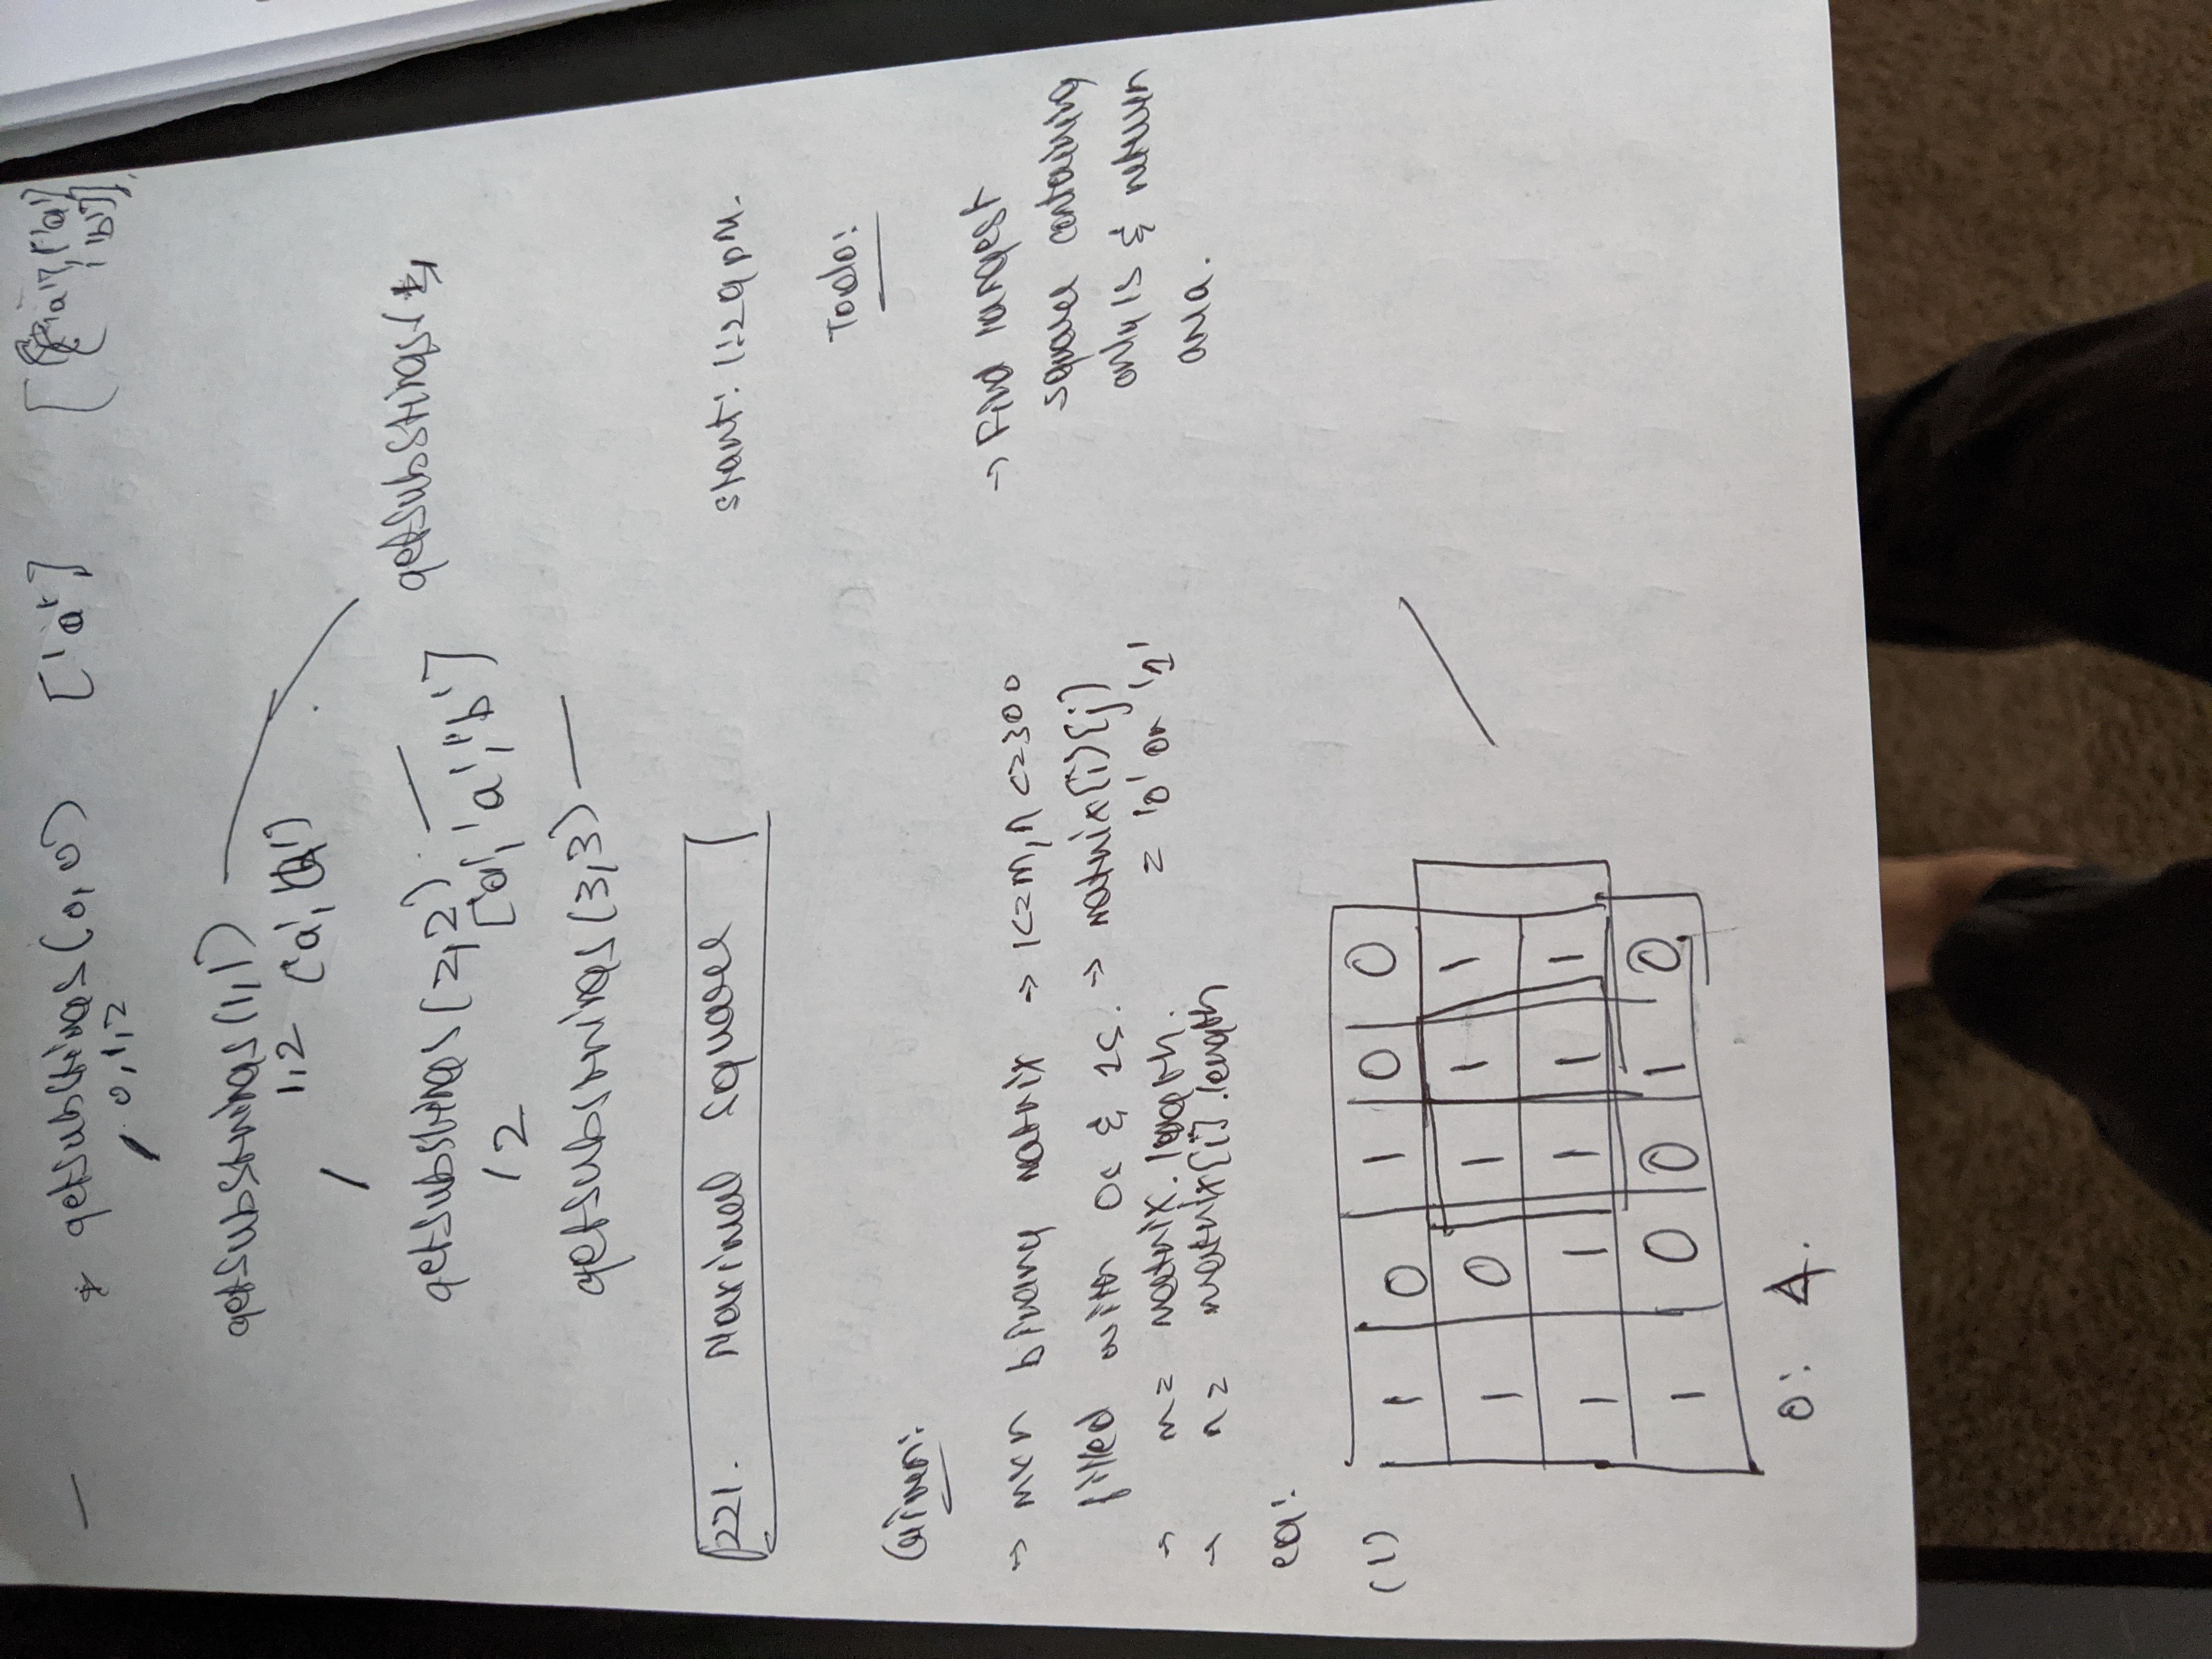 * getsubstrings(0,0) ['a']
0,1,2
getsubstrings(1,1)
1,2
getsubstrings(2,2) getsubstrings(
['a','a','b']
2
getsubstrings(3,3)
221. Maximal square
start: 1:29 pm.
Todo:
Given:
→ mxn binary matrix → 1<=m,n<=300
filled with 0s & 1s. → matrix[i][j]
= '0' or '1'
→ m= matrix.length.
→ n= matrix[i].length
→ Find largest
square containing
only 1s & return
area.
eg:
(1)
1 0 1 0 0
1 0 1 1 1
1 1 1 1 1
1 0 0 1 0
o: 4.